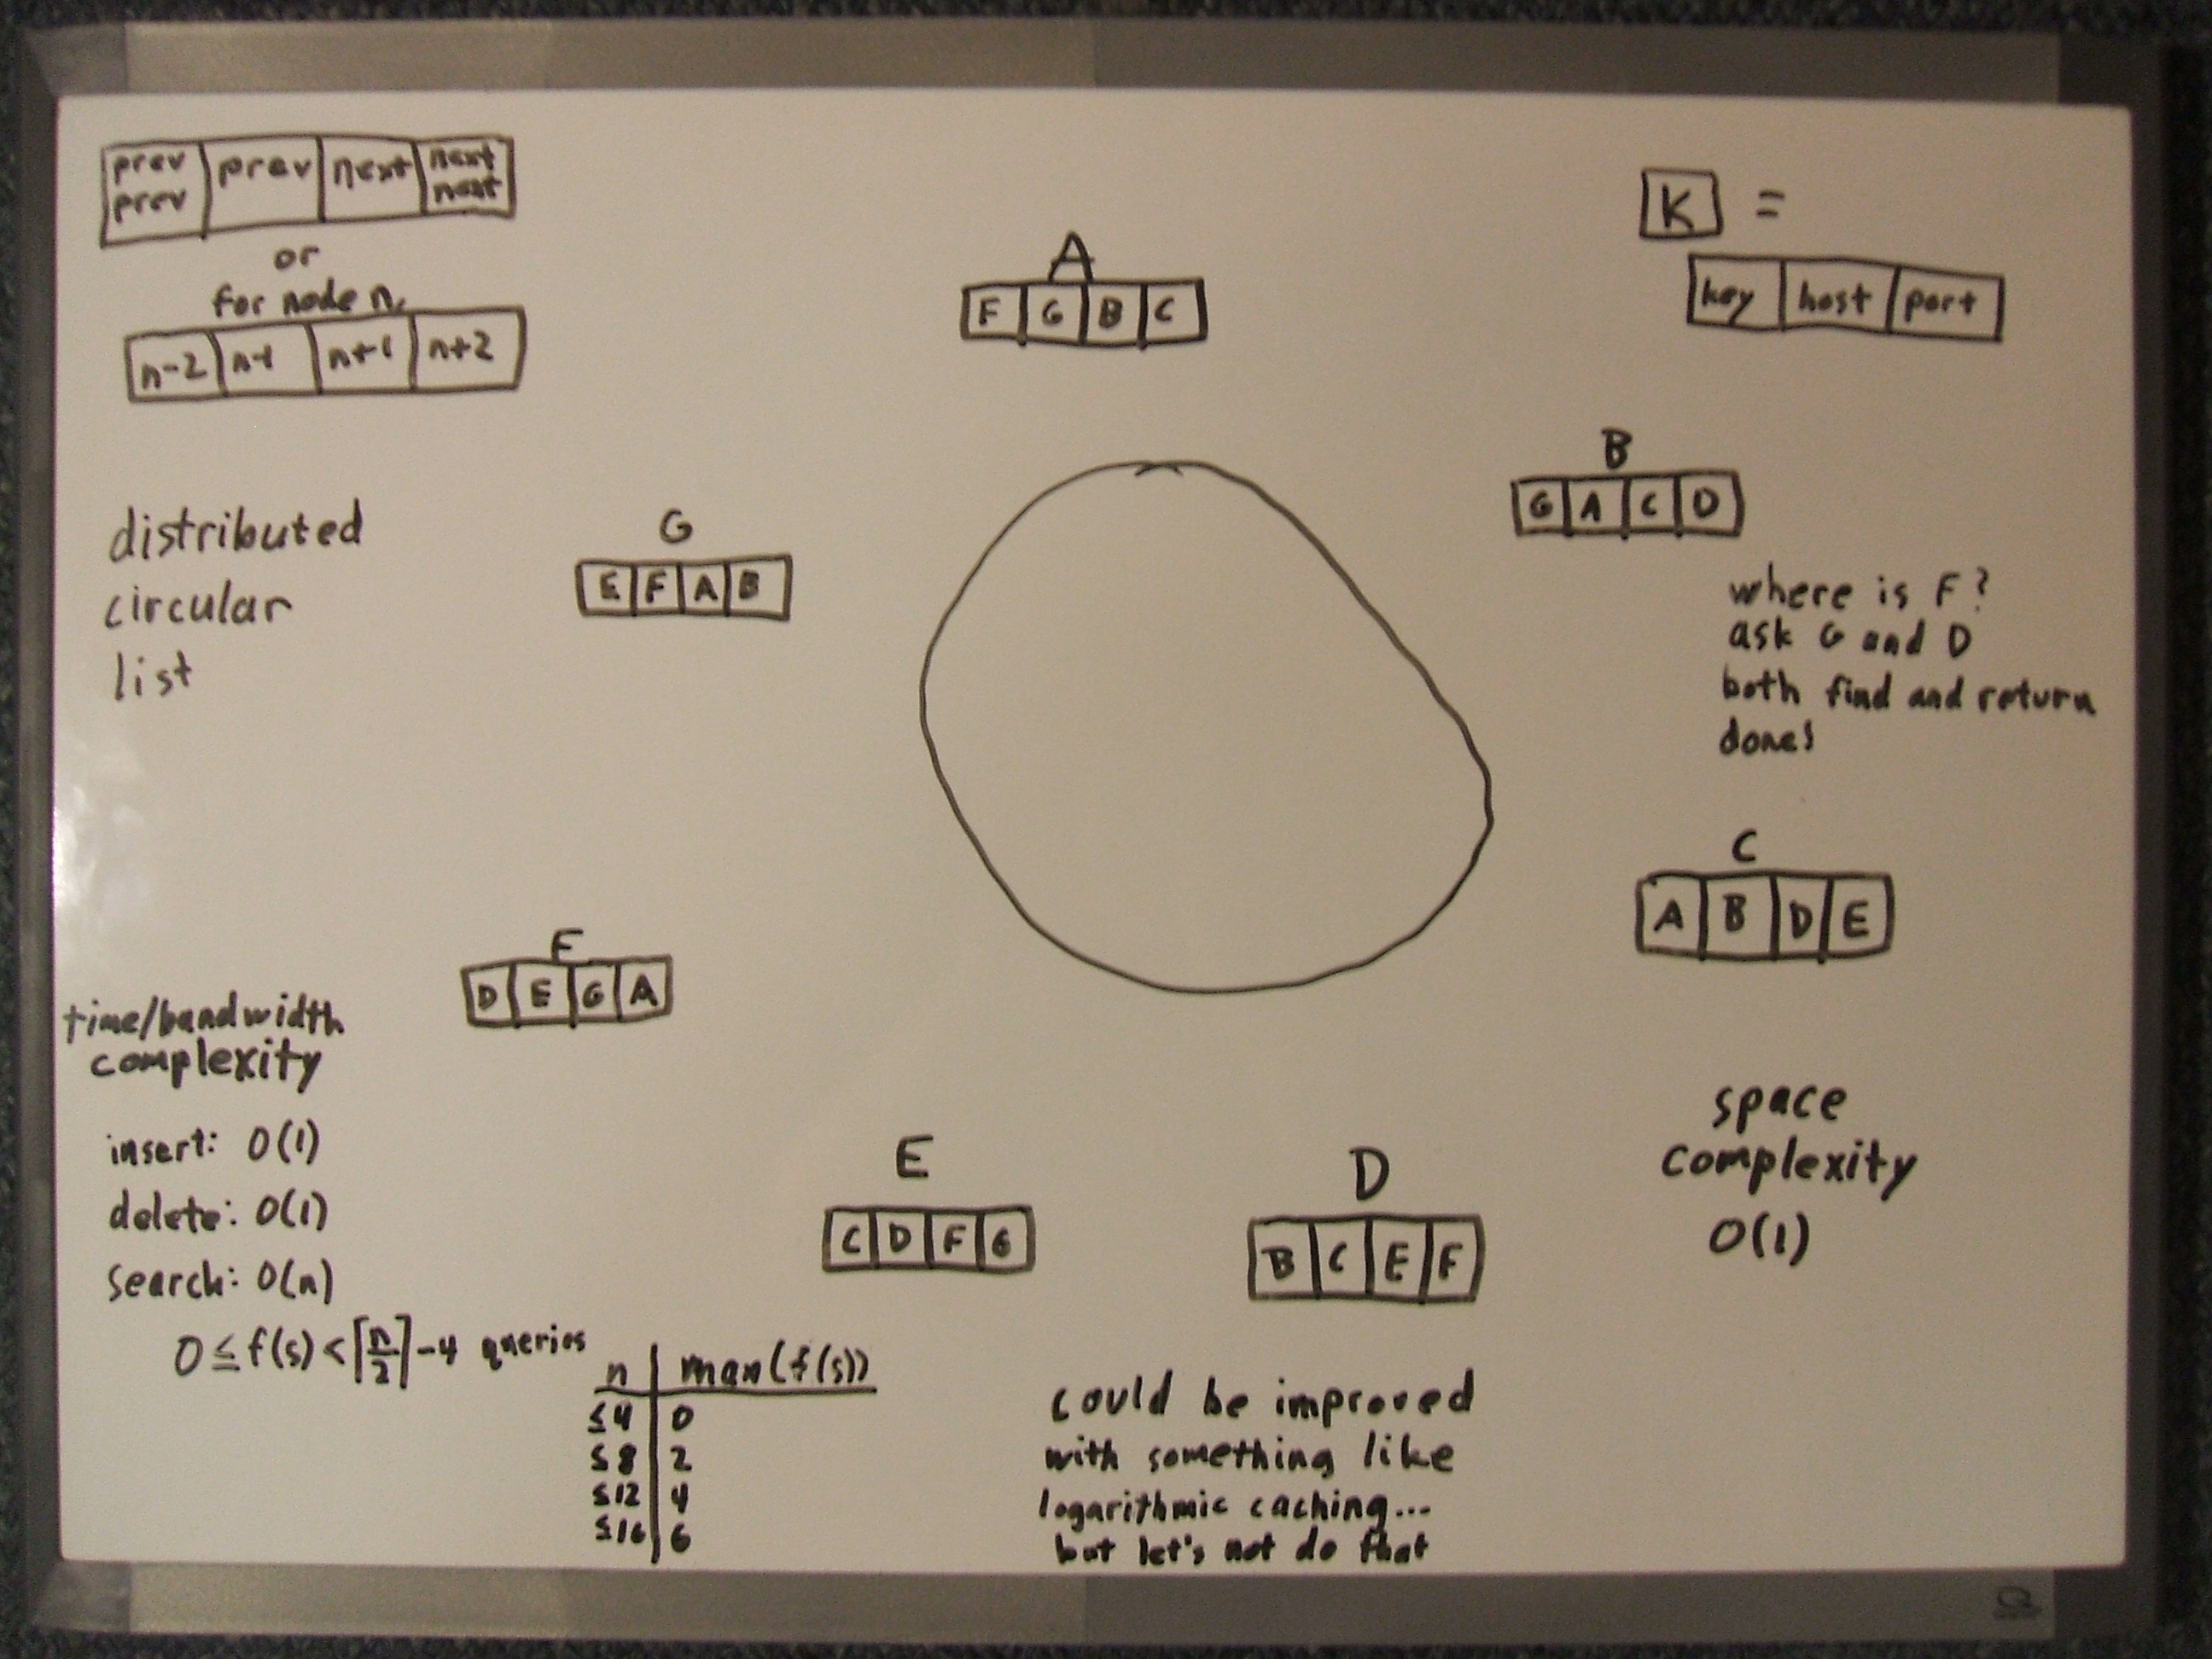 prev prev | prev | next | next next
or
for node n,
n-2 | n-1 | n+1 | n+2
K =
key | host | port
A
F | G | B | C
B
G | A | C | D
where is F?
ask G and D
both find and return
done!
distributed
circular
list
G
E | F | A | B
C
A | B | D | E
F
D | E | G | A
time/bandwidth
complexity
insert: O(1)
delete: O(1)
search: O(n)
0 ≤ f(s) < ⌈n/2⌉ - 4 queries
E
C | D | F | G
D
B | C | E | F
space
complexity
O(1)
n | max(f(s))
≤4 | 0
≤8 | 2
≤12 | 4
≤16 | 6
could be improved
with something like
logarithmic caching...
but let's not do that